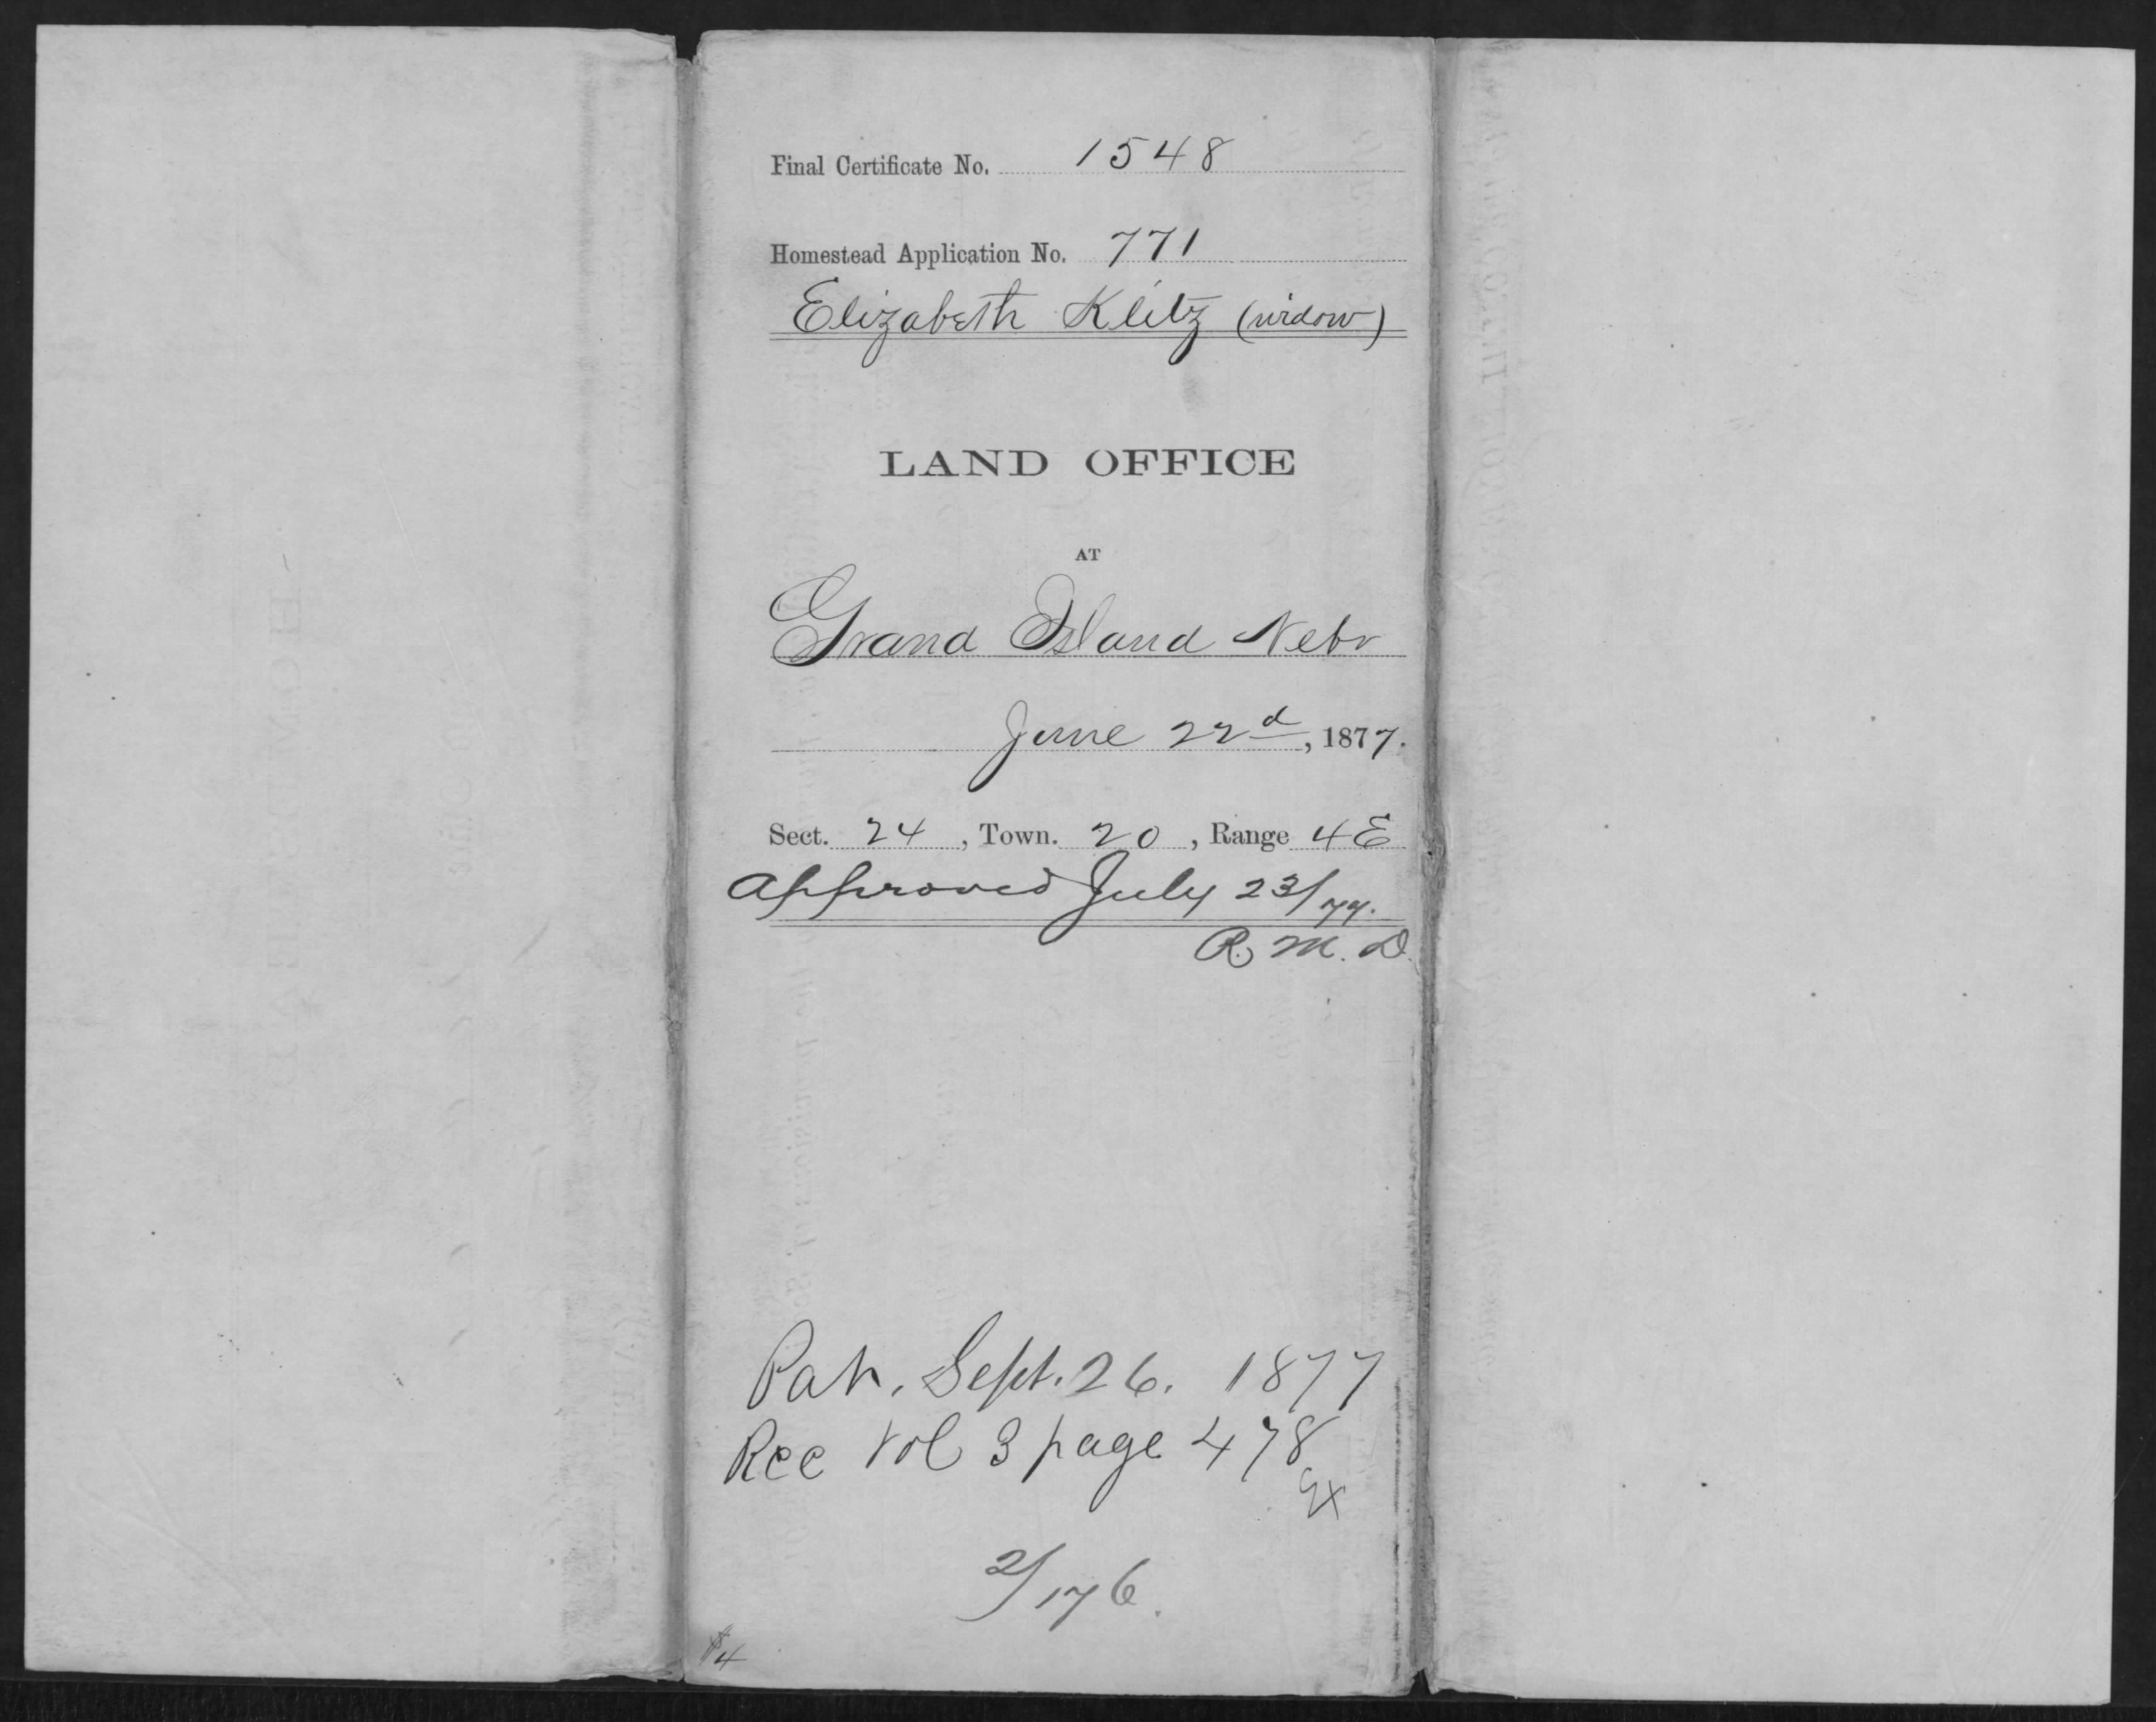 Final Certificate No. 1548
Homestead Application No. 771
Elizabeth Klitz (widow)
LAND OFFICE
AT
Grand Island Nebr
June 22d, 1877.
Sect. 24, Town. 20, Range 4 E
Approved July 23/77.
R. M. D.
Pat. Sept. 26. 1877
Rec Vol 3 page 478
2/176.